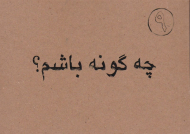 چه گونه باشم؟